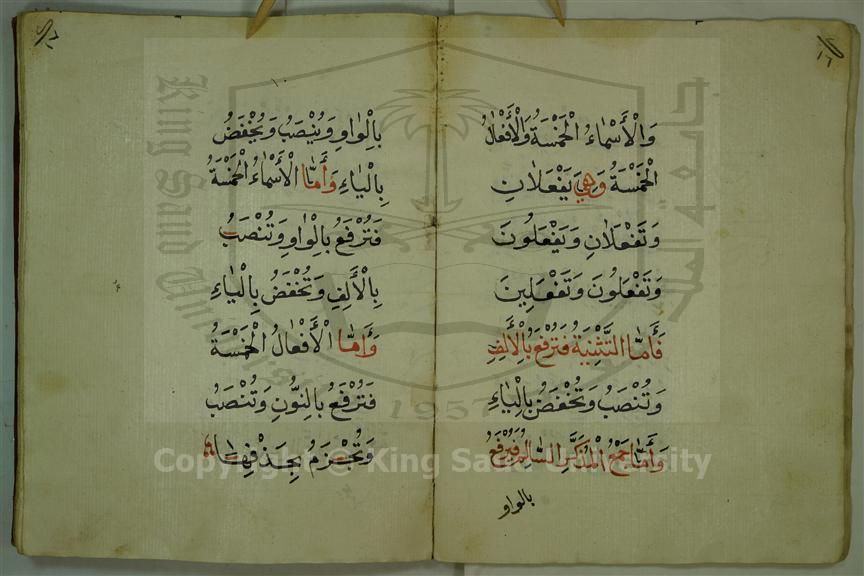 وَالْأَسْمَاءُ الْخَمْسَةُ وَالْأَفْعَالُ
الْخَمْسَةُ وَهِيَ يَفْعَلَانِ
وَتَفْعَلَانِ وَيَفْعَلُونَ
وَتَفْعَلُونَ وَتَفْعَلِينَ
فَأَمَّا التَّثْنِيَةُ فَتُرْفَعُ بِالْأَلِفِ
وَتُنْصَبُ وَتُخْفَضُ بِالْيَاءِ
وَأَمَّا جَمْعُ الْمُذَكَّرِ السَّالِمُ فَيُرْفَعُ
بالواو
بِالْوَاوِ وَيُنْصَبُ وَيُخْفَضُ
بِالْيَاءِ وَأَمَّا الْأَسْمَاءُ الْخَمْسَةُ
فَتُرْفَعُ بِالْوَاوِ وَتُنْصَبُ
بِالْأَلِفِ وَتُخْفَضُ بِالْيَاءِ
وَأَمَّا الْأَفْعَالُ الْخَمْسَةُ
فَتُرْفَعُ بِالنُّونِ وَتُنْصَبُ
وَتُجْزَمُ بِحَذْفِهَا
جامعة الملك
King Saud
1957
Copyright © King Saud University